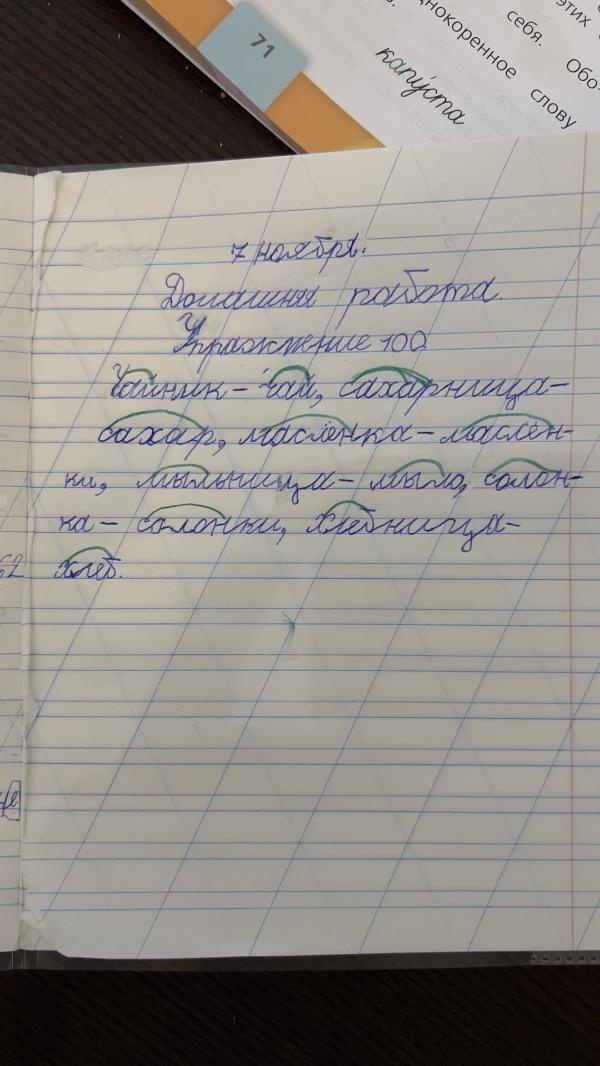 71
этих
себя. Обо-
днокоренное слову
капу́ста
7 ноября.
Домашняя работа.
Упражнение 100
Чайник – чай, сахарница –
сахар, маслёнка – маслён-
ки, мыльница – мыло, солон-
ка – солонки, хлебница –
хлеб.
62